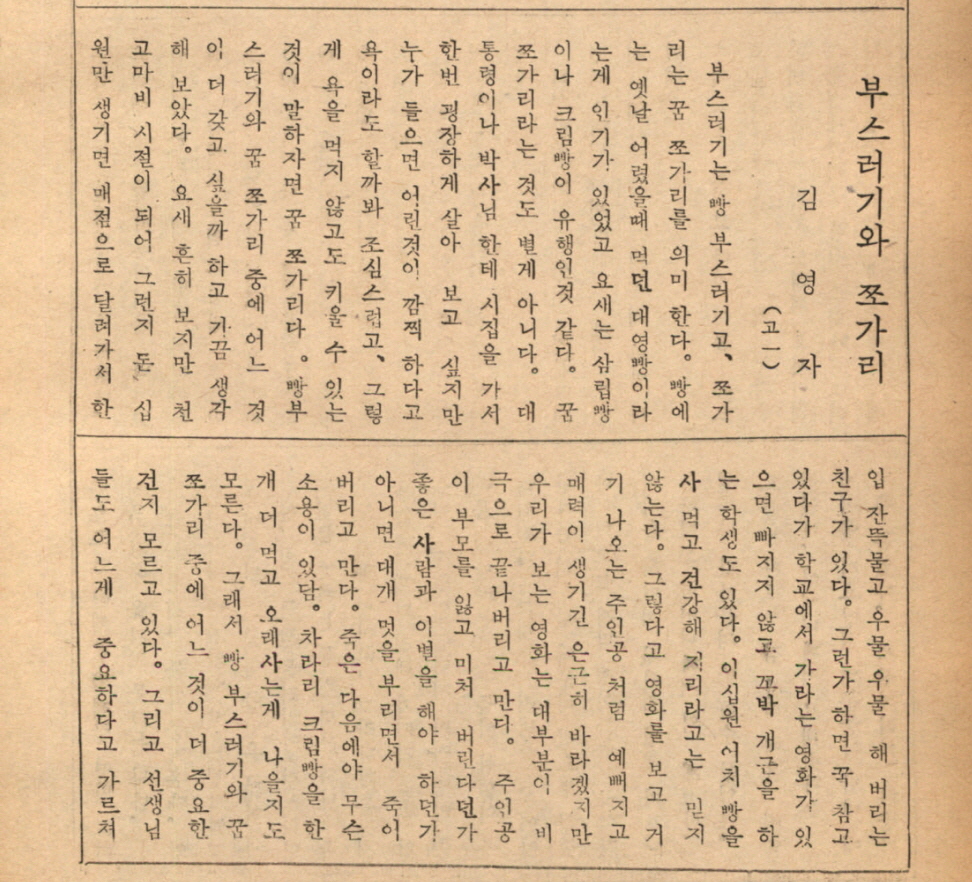 부스러기와 쪼가리
김 영 자
(고一)
부스러기는 빵 부스러기고、 쪼가
리는 꿈 쪼가리를 의미 한다。 빵에
는 옛날 어렸을때 먹던 대영빵이라
는게 인기가 있었고 요새는 삼립빵
이나 크림빵이 유행인것 같다。 꿈
쪼가리라는 것도 별게 아니다。 대
통령이나 박사님 한테 시집을 가서
한번 굉장하게 살아 보고 싶지만
누가 들으면 어린것이 깜찍 하다고
욕이라도 할까봐 조심스럽고、 그렇
게 욕을 먹지 않고도 키울 수 있는
것이 말하자면 꿈 쪼가리다。 빵부
스러기와 꿈 쪼가리 중에 어느 것
이 더 갖고 싶을까 하고 가끔 생각
해 보았다。 요새 흔히 보지만 천
고마비 시절이 되어 그런지 돈 십
원만 생기면 매점으로 달려가서 한
입 잔뜩물고 우물 우물 해 버리는
친구가 있다。 그런가 하면 꾹 참고
있다가 학교에서 가라는 영화가 있
으면 빠지지 않고 꼬박 개근을 하
는 학생도 있다。 이십원 어치 빵을
사 먹고 건강해 지리라고는 믿지
않는다。 그렇다고 영화를 보고 거
기 나오는 주인공 처럼 예뻐지고
매력이 생기긴 은근히 바라겠지만
우리가 보는 영화는 대부분이 비
극으로 끝나버리고 만다。 주인공
이 부모를 잃고 미처 버린다던가
좋은 사람과 이별을 해야 하던가
아니면 대개 멋을 부리면서 죽어
버리고 만다。 죽은 다음에야 무슨
소용이 있담。 차라리 크림빵을 한
개 더 먹고 오래사는게 나을지도
모른다。 그래서 빵 부스러기와 꿈
쪼가리 중에 어느 것이 더 중요한
건지 모르고 있다。 그리고 선생님
들도 어느게 중요하다고 가르쳐